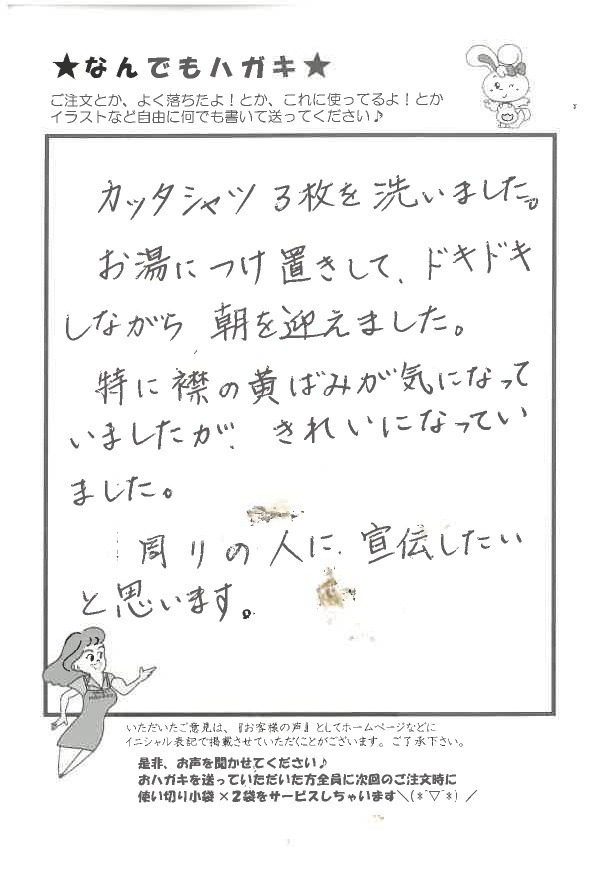 ★なんでもハガキ★
ご注文とか、よく落ちたよ！とか、これに使ってるよ！とか
イラストなど自由に何でも書いて送ってください♪
カッタシャツ3枚を洗いました。
お湯につけ置きして、ドキドキ
しながら 朝を迎えました。
特に襟の黄ばみが気になって
いましたが、きれいになってい
ました。
周りの人に、宣伝したい
と思います。
いただいたご意見は、『お客様の声』としてホームページなどに
イニシャル表記で掲載させていただくことがございます。ご了承下さい。
是非、お声を聞かせてください♪
おハガキを送っていただいた方全員に次回のご注文時に
使い切り小袋×2袋をサービスしちゃいます＼(*´▽`*)／